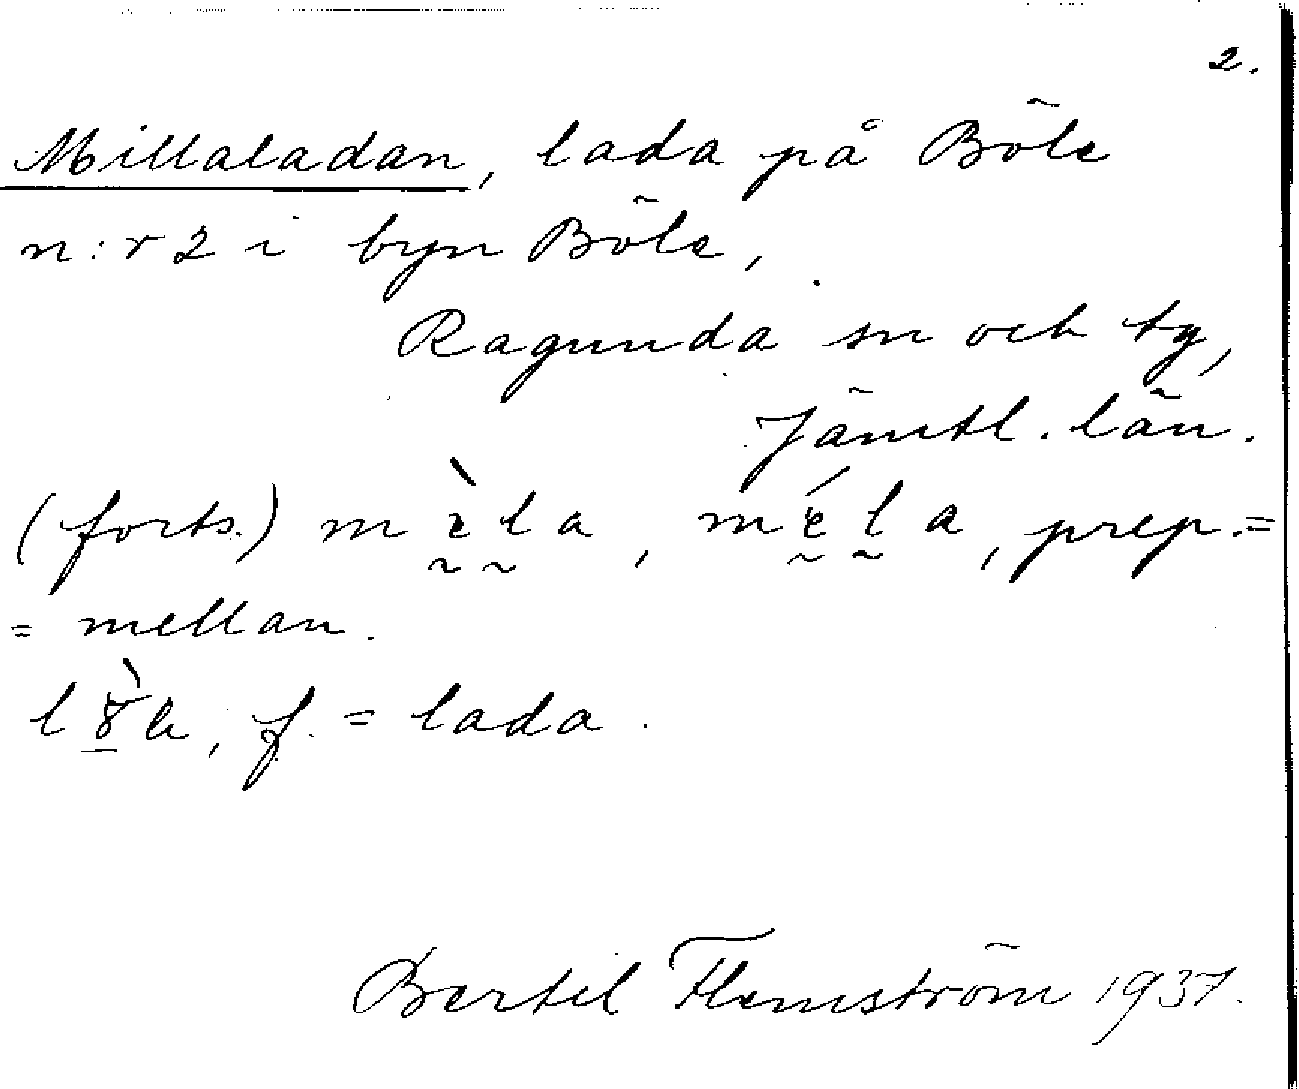 2.
Millaladan, lada på Böle
n:r 2 i byn Böle,
Ragunda sn och tg,
Jämtl. län.
(forts.) mḛ̀l̰a, mḛ́l̰a, prep. =
= mellan.
f. = lada.
Bertil Flemström 1937.